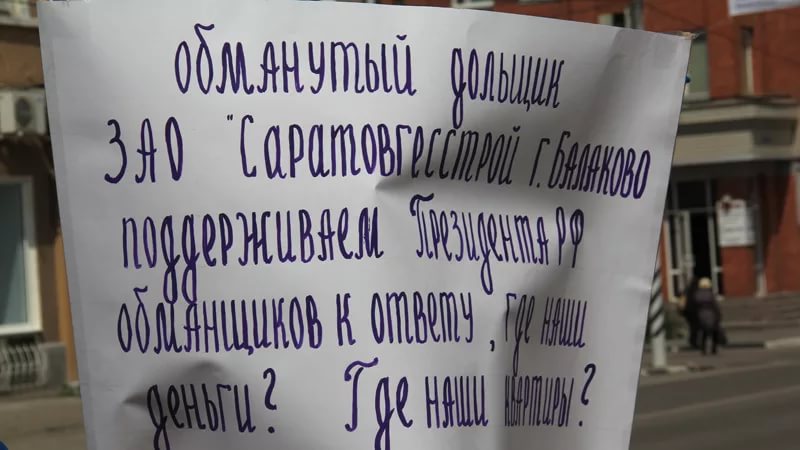 обманутый дольщик
ЗАО "Саратовгесстрой г. Балаково
поддерживаем Президента РФ
обманщиков к ответу, где наши
деньги? Где наши квартиры?